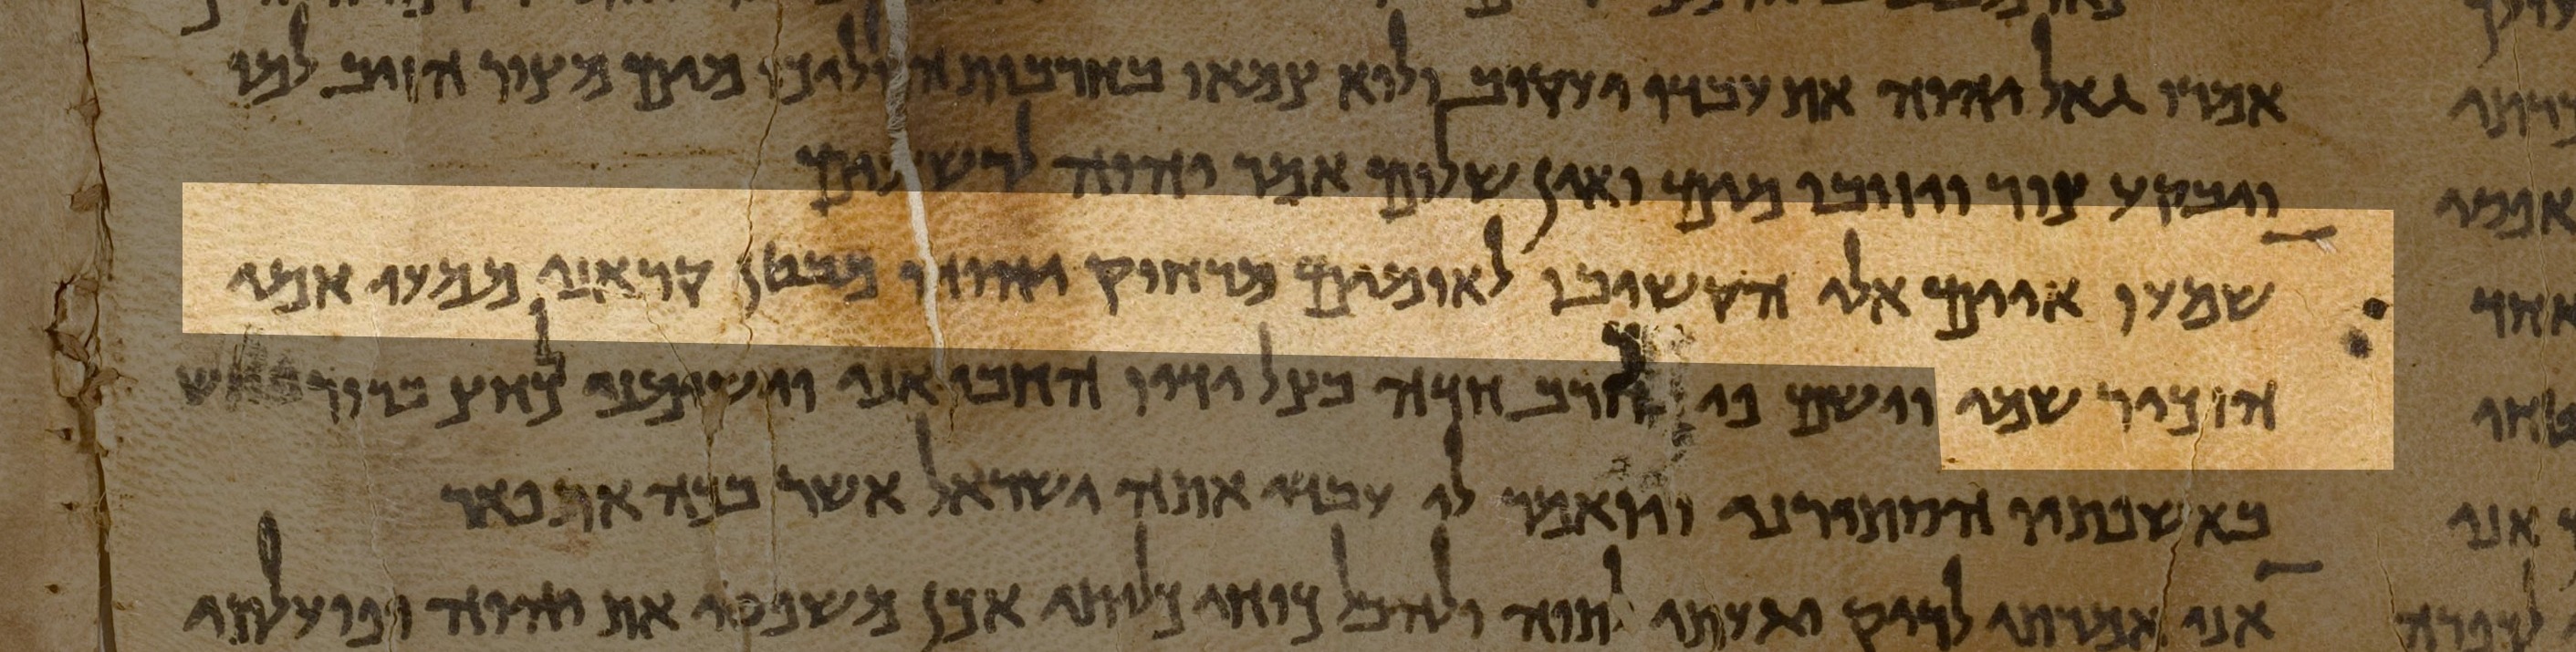 אמרו גאל יהוה את עבדו יעקוב ולוא צמאו בחרבות הוליכו מים מצור הזיב למו
ויבקע צור ויזובו מים ואין שלום אמר יהוה לרשעים
שמעו איים אלי הקשיבו לאומים מרחוק יהוה מבטן קראני ממעי אמי
הזכיר שמי וישם פי כחרב חדה בצל ידיו החביאני וישימני כחץ ברור
באשפתיו הסתירני ויואמר לי עבדי אתה ישראל אשר בכה אתפאר
אני אמרתי לריק יגעתי לתוה ולהבל כוחי כליתי אכן משפטי את יהוה ופועלתי